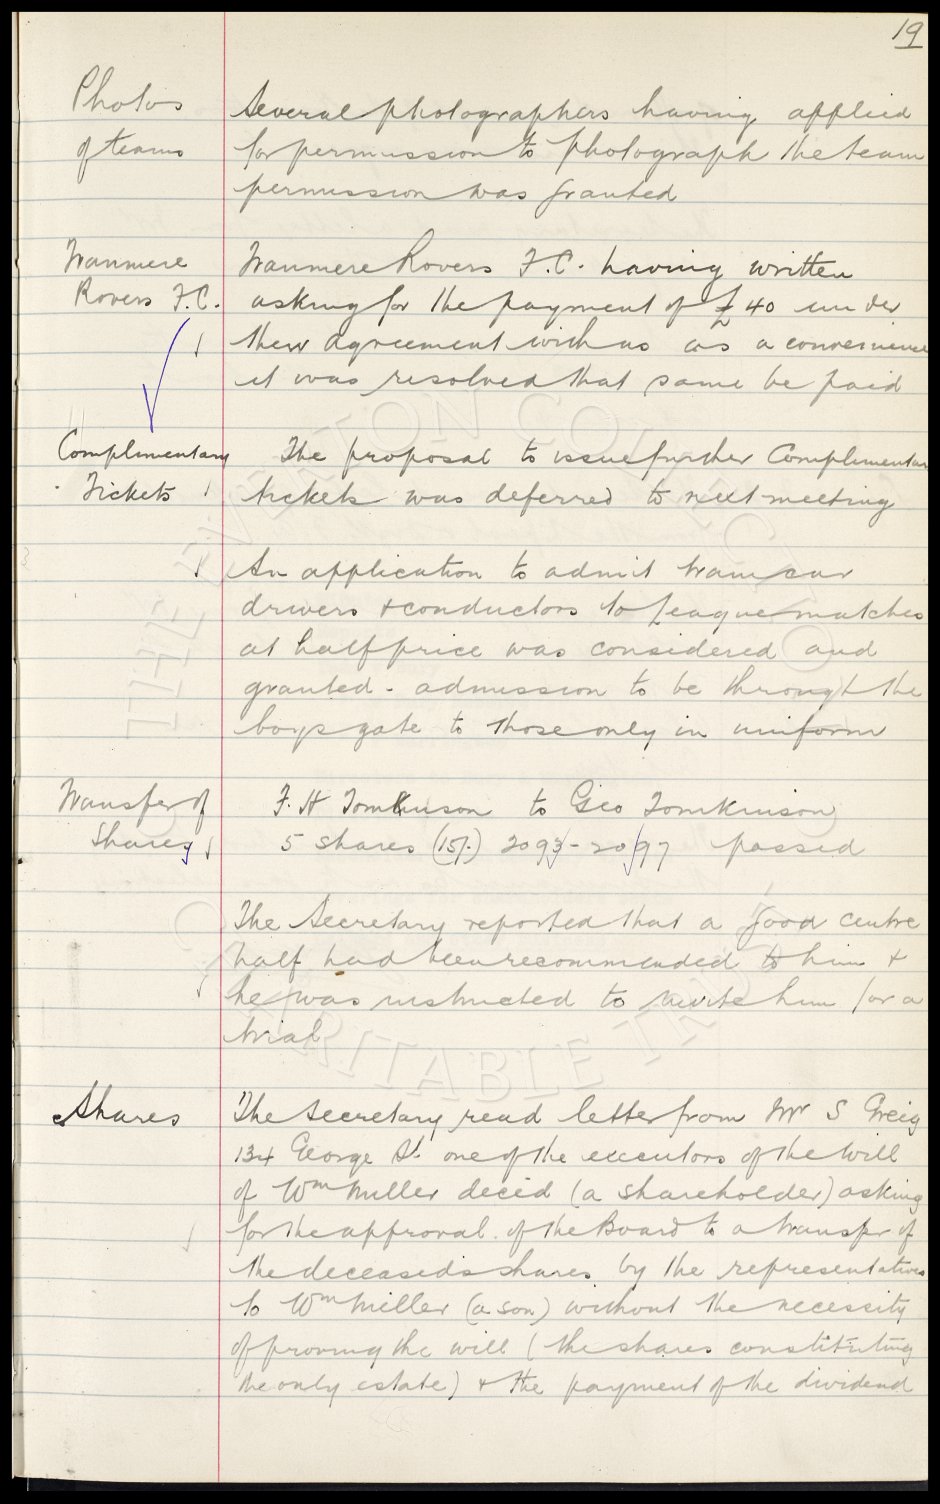 19
Photos
of teams
Several photographers having applied
for permission to photograph the team
permission was granted
Tranmere
Rovers F.C.
Tranmere Rovers F.C. having written
asking for the payment of £40 under
their agreement with us as a convenience
it was resolved that same be paid
Complimentary
Tickets
The proposal to issue further Complimentary
tickets was deferred to next meeting
An application to admit tram car
drivers & conductors to League matches
at half price was considered and
granted - admission to be through the
boys gate to those only in uniform
Transfer of
Shares
F. H Tomkinson to Geo Tomkinson
5 shares (15/-) 2093 - 2097 passed
The Secretary reported that a good centre
half had been recommended to him &
he was instructed to invite him for a
trial
Shares
The Secretary read letter from Mr S Greig
134 George St. one of the executors of the will
of Wm Miller deced (a shareholder) asking
for the approval of the Board to a transfer of
the deceaseds shares by the representatives
to Wm Miller (a son) without the necessity
of proving the will (the shares constituting
the only estate) & the payment of the dividend
THE EVERTON COLLECTION
CHARITABLE TRUST